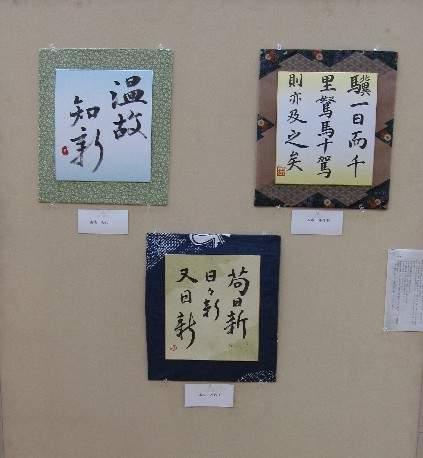 温故
知新
驥一日而千
里駑馬十駕
則亦及之矣
苟日新
日々新
又日新